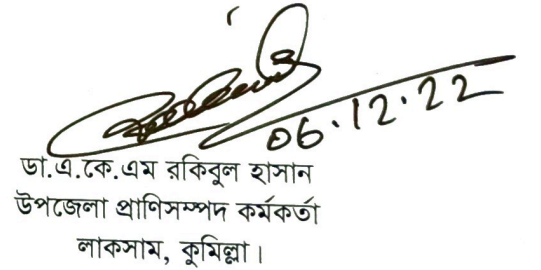 06.12.22
ডা.এ.কে.এম রকিবুল হাসান
উপজেলা প্রাণিসম্পদ কর্মকর্তা
লাকসাম, কুমিল্লা।